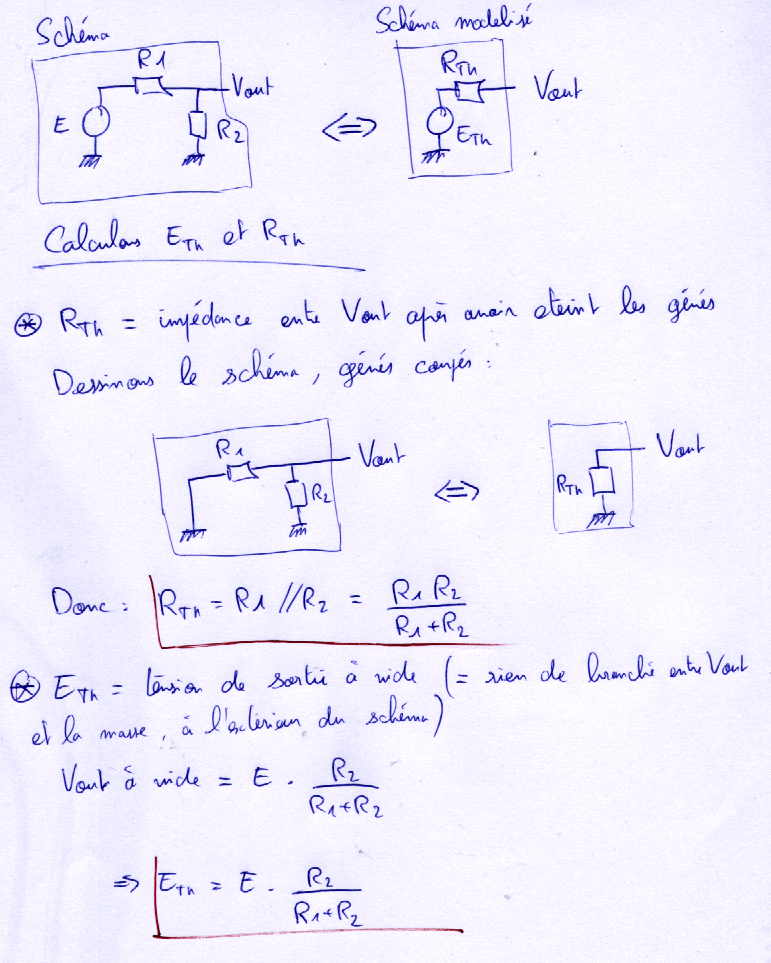 Schéma
Schéma modelisé
R1
Vout
E
R2
<=>
RTh
Vout
ETh
Calculons ETh et RTh
⊛ RTh = impédance entre Vout après avoir éteint les génés
Dessinons le schéma, génés coupés :
R1
Vout
R2
<=>
Vout
RTh
Donc : RTh = R1 // R2 = R1 R2 / R1+R2
⊛ ETh = tension de sortie à vide (= rien de branché entre Vout
et la masse, à l'extérieur du schéma)
Vout à vide = E . R2 / R1+R2
=> ETh = E . R2 / R1+R2